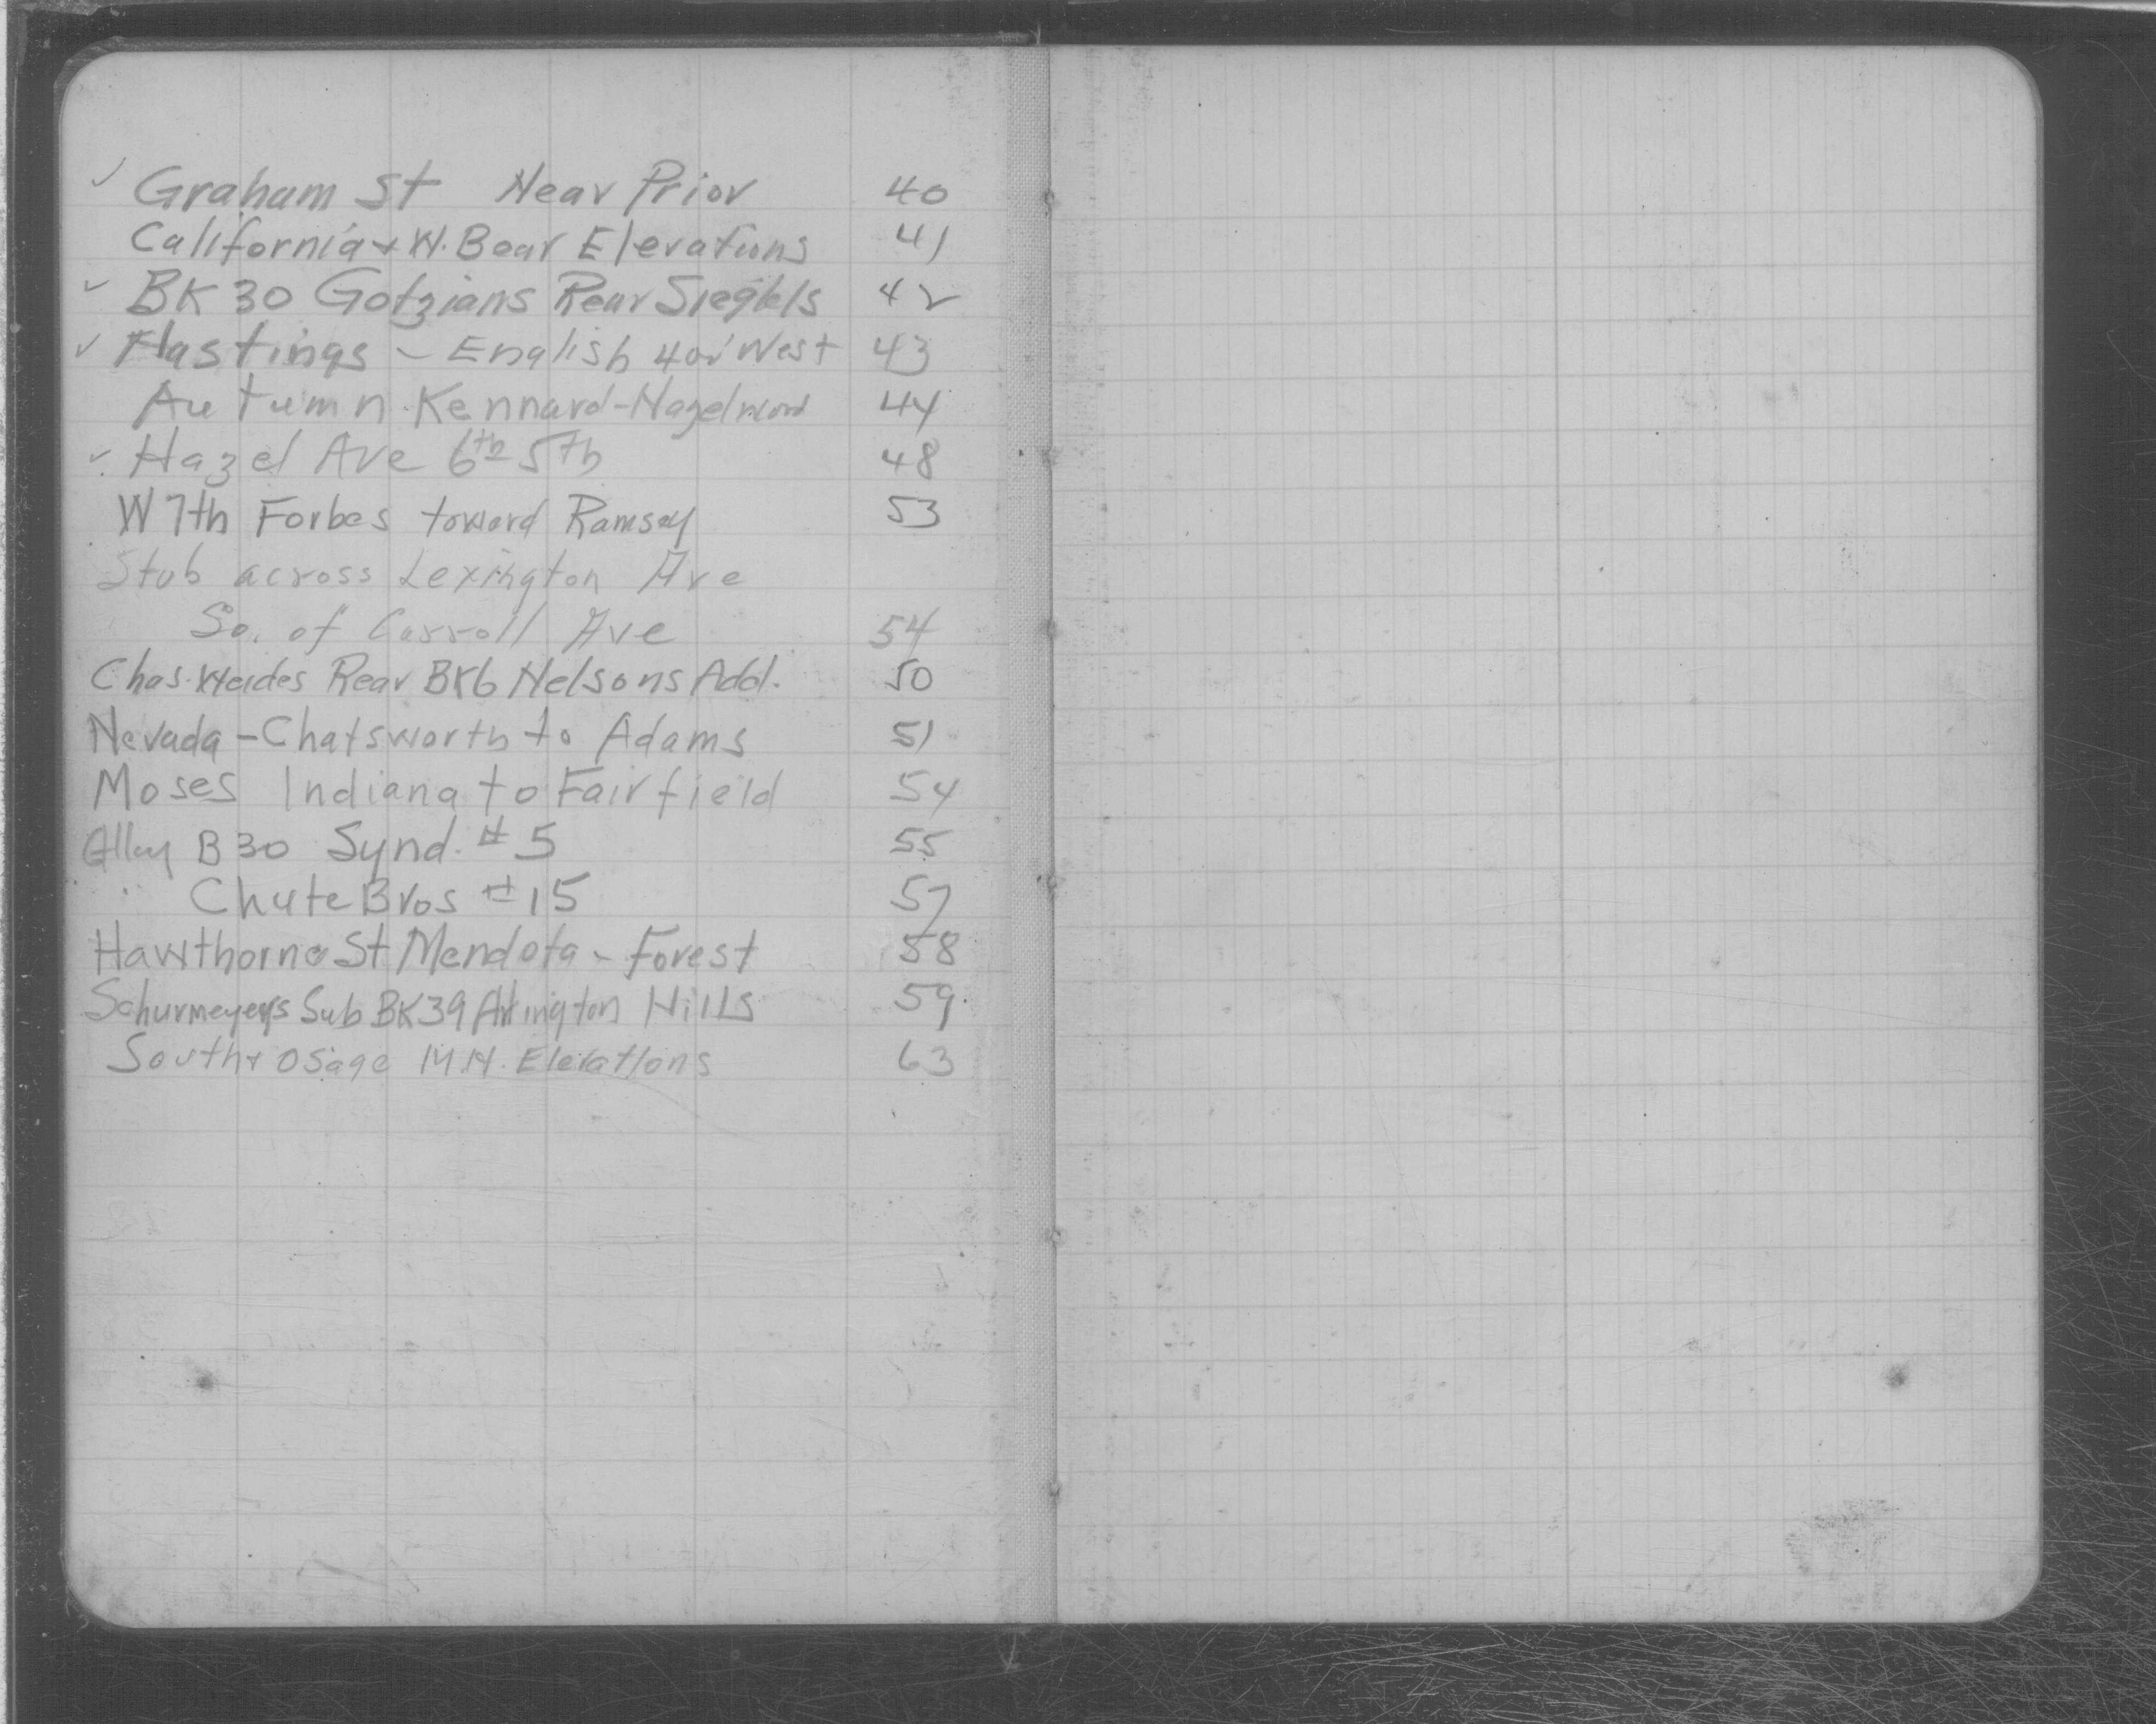 ✓ Graham St Near Prior 40
California & W. Bear Elevations 41
✓ BK 30 Gotzians Rear 42
✓ Hastings - English 400' West 43
Autumn Kennard-Hazelwood 44
✓ Hazel Ave 6th 5th 48
W 7th Forbes toward Ramsey 53
Stub across Lexington Ave
So. of Carroll Ave 54
Chas. Rear BK6 Nelsons Add. 50
Nevada - Chatsworth to Adams 51
Moses Indiana to Fairfield 54
Alley B 30 Synd. #5 55
" Chute Bros #15 57
Hawthorne St Mendota - Forest 58
Schurmeyers Sub BK 39 Arlington Hills 59
South & Osage Elevations 63